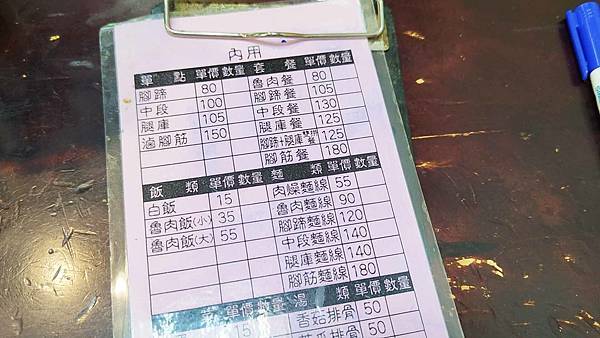 內用
單點 單價 數量 套餐 單價 數量
腳蹄 80 魯肉餐 80
中段 100 腳蹄餐 105
腿庫 105 中段餐 130
滷腳筋 150 腿庫餐 125
腳蹄+腿庫 餐 125
腳筋餐 180
飯類 單價 數量 麵類 單價 數量
白飯 15 肉燥麵線 55
魯肉飯(小) 35 魯肉麵線 90
魯肉飯(大) 55 腳蹄麵線 120
中段麵線 140
腿庫麵線 140
腳筋麵線 180
單價 數量 湯類 單價 數量
15 香菇排骨 50
排骨 50